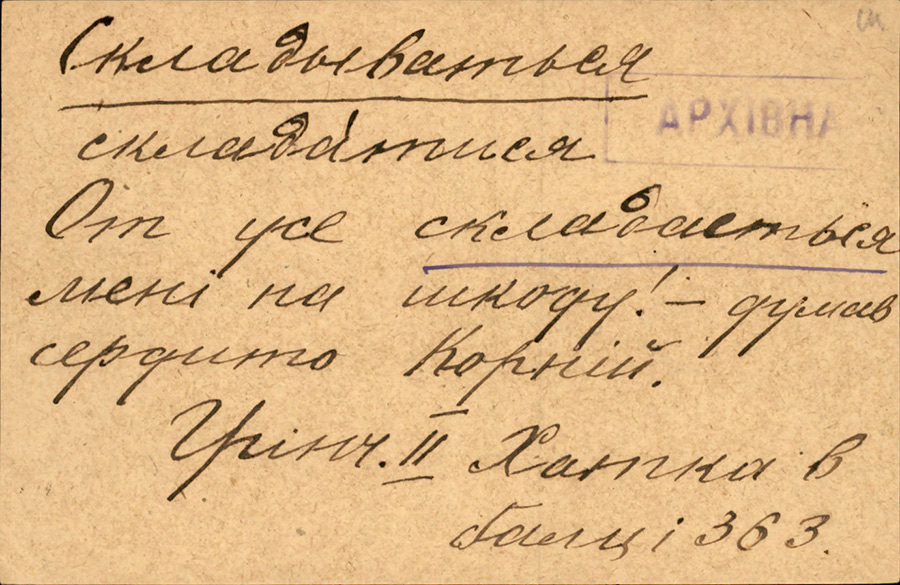 Складываться
АРХІВНА
склада́тися
От усе складається
мені на шкоду! – думав
сердито Корній.
Грінч. II Хатка в
балці 363.